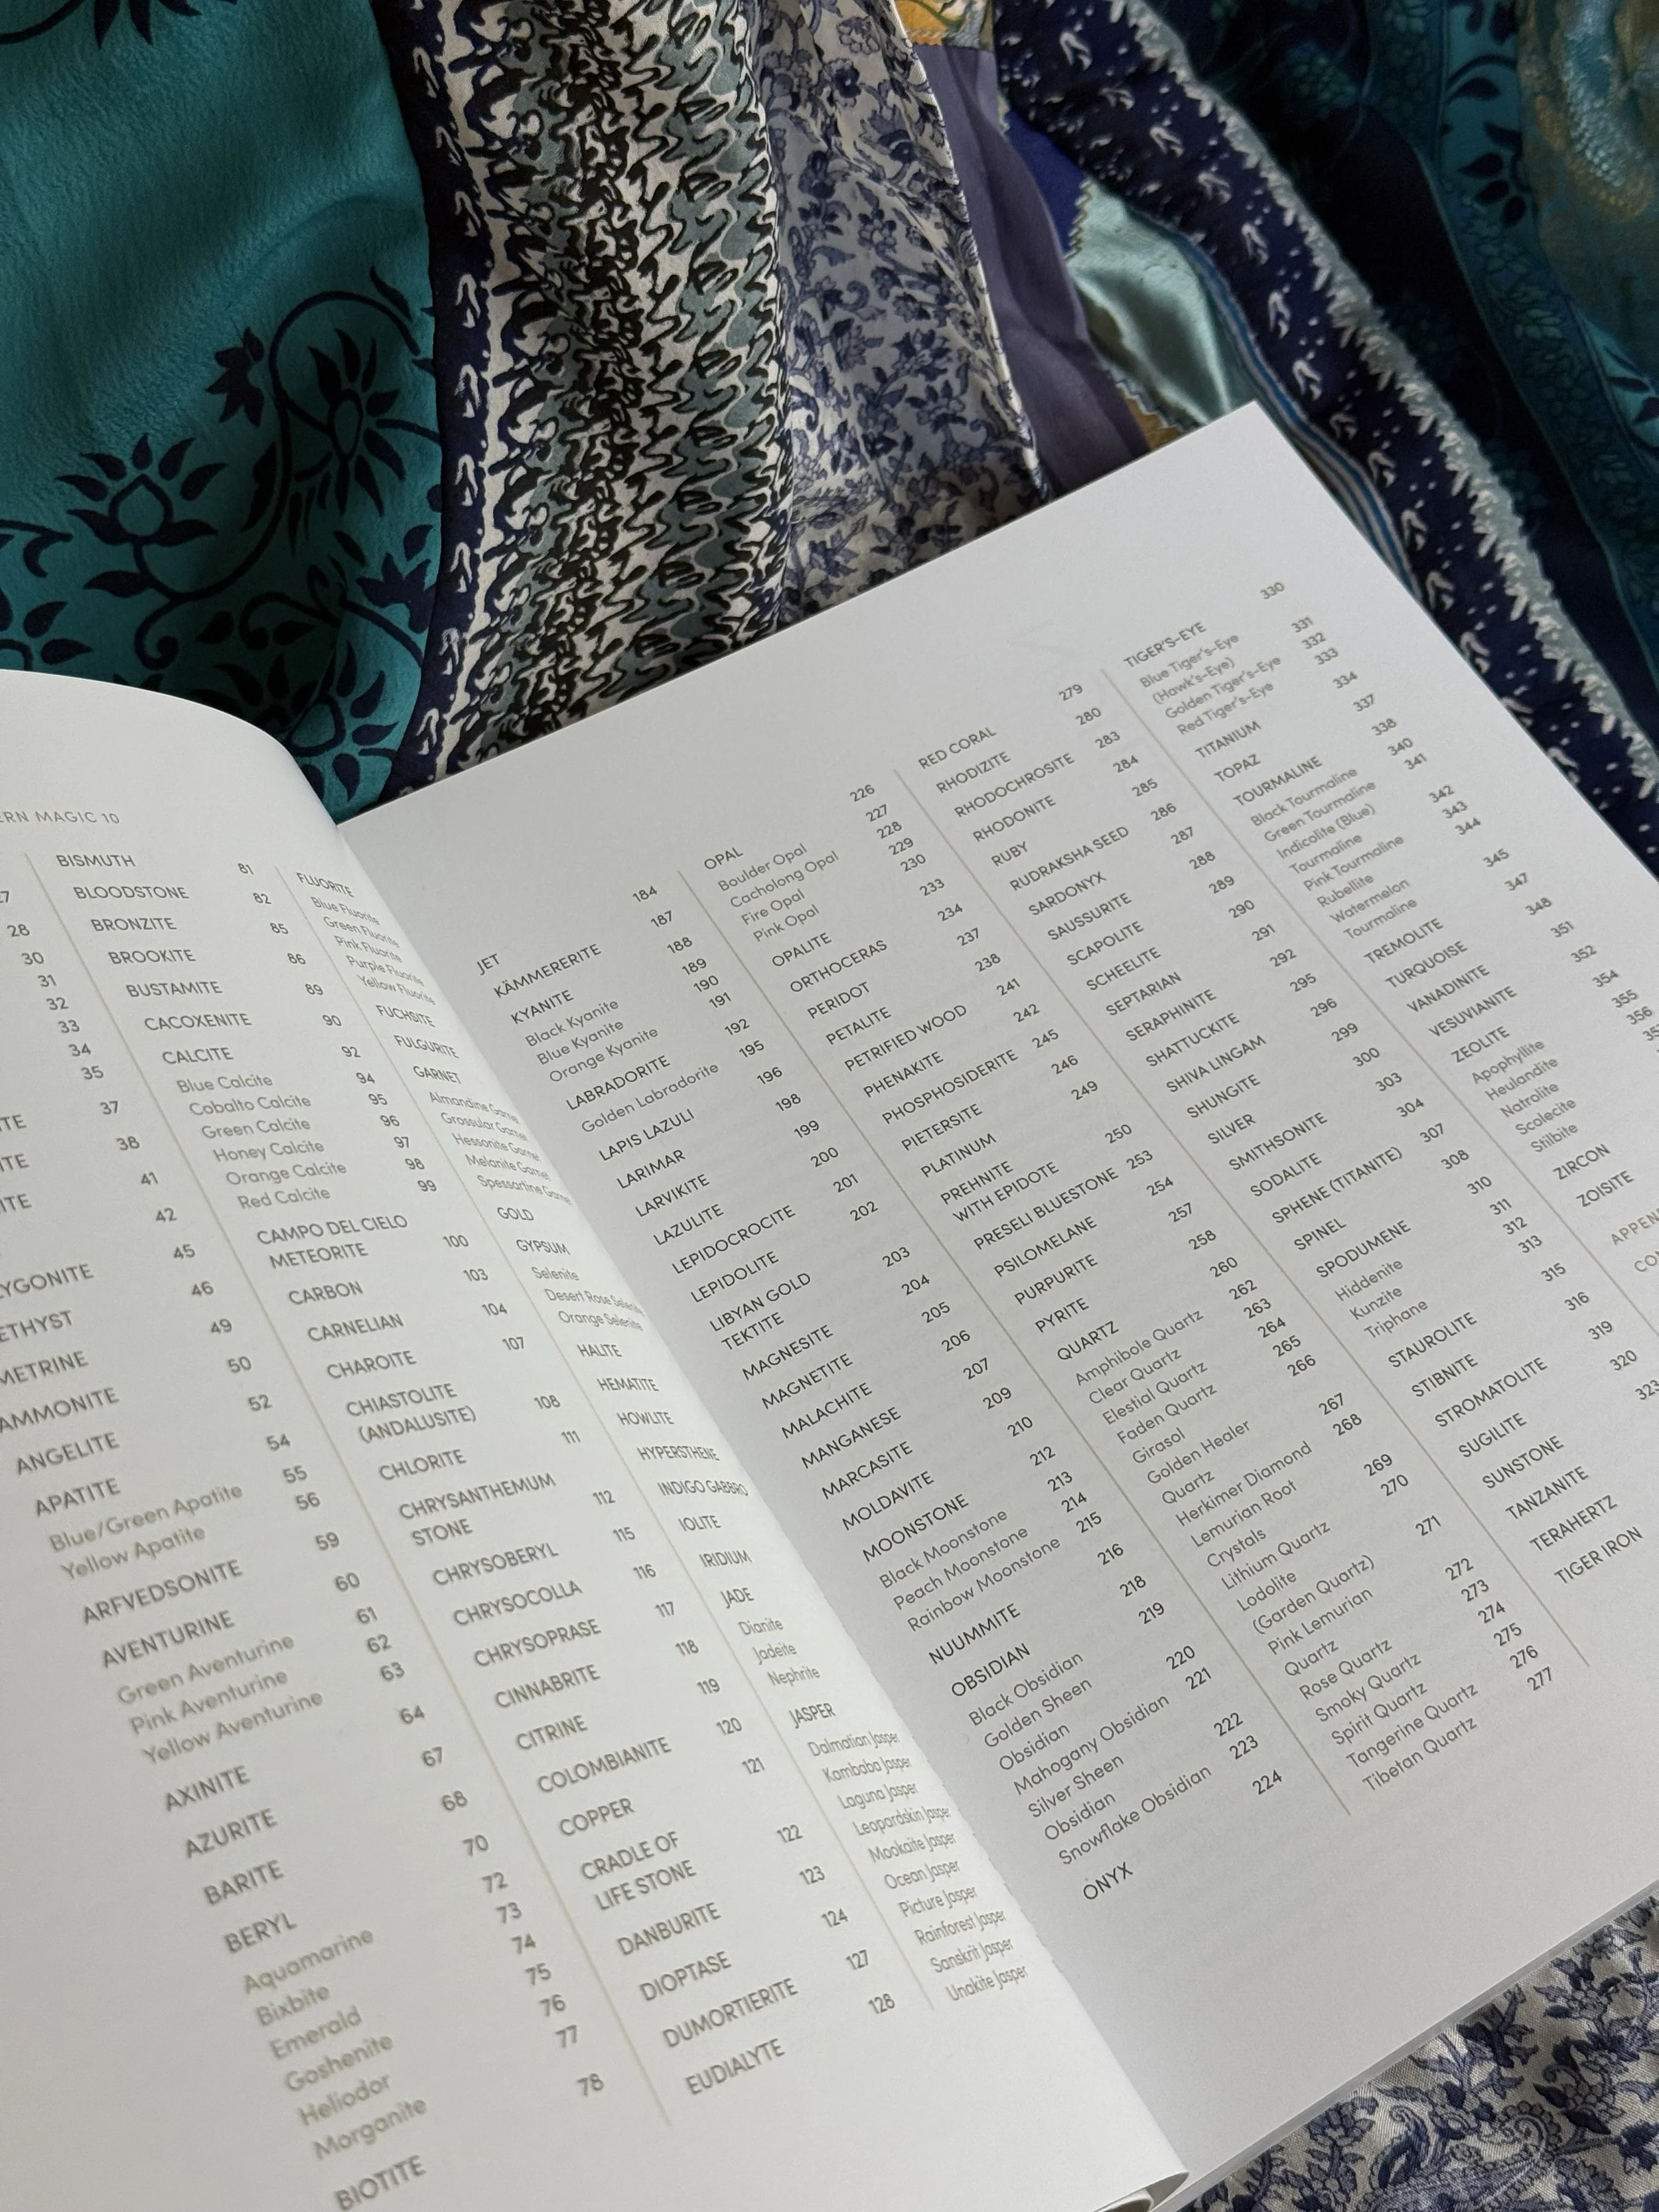 ERN MAGIC 10
28
30
31
32
33
34
35
37
38
41
42
45
ETHYST 46
METRINE 49
AMMONITE 50
ANGELITE 52
APATITE 54
Blue/Green Apatite 55
Yellow Apatite 56
ARFVEDSONITE 59
AVENTURINE 60
Green Aventurine 61
Pink Aventurine 62
Yellow Aventurine 63
AXINITE 64
AZURITE 67
BARITE 68
BERYL 70
Aquamarine 72
Bixbite 73
Emerald 74
Goshenite 75
Heliodor 76
Morganite 77
BIOTITE 78
BISMUTH 81
BLOODSTONE 82
BRONZITE 85
BROOKITE 86
BUSTAMITE 89
CACOXENITE 90
CALCITE 92
Blue Calcite 94
Cobalto Calcite 95
Green Calcite 96
Honey Calcite 97
Orange Calcite 98
Red Calcite 99
CAMPO DEL CIELO
METEORITE 100
CARBON 103
CARNELIAN 104
CHAROITE 107
CHIASTOLITE
(ANDALUSITE) 108
CHLORITE 111
CHRYSANTHEMUM
STONE 112
CHRYSOBERYL 115
CHRYSOCOLLA 116
CHRYSOPRASE 117
CINNABRITE 118
CITRINE 119
COLOMBIANITE 120
COPPER 121
CRADLE OF
LIFE STONE 122
DANBURITE 123
DIOPTASE 124
DUMORTIERITE 127
EUDIALYTE 128
FLUORITE
Blue Fluorite
Green Fluorite
Pink Fluorite
Purple Fluorite
Yellow Fluorite
FUCHSITE
FULGURITE
GARNET
Almandine Garnet
Grossular Garnet
Hessonite Garnet
Melanite Garnet
Spessartine Garnet
GOLD
GYPSUM
Selenite
Desert Rose Selenite
Orange Selenite
HALITE
HEMATITE
HOWLITE
HYPERSTHENE
INDIGO GABBRO
IOLITE
IRIDIUM
JADE
Dianite
Jadeite
Nephrite
JASPER
Dalmatian Jasper
Kambaba Jasper
Laguna Jasper
Leopardskin Jasper
Mookaite Jasper
Ocean Jasper
Picture Jasper
Rainforest Jasper
Sanskrit Jasper
Unakite Jasper
JET 184
KÄMMERERITE 187
KYANITE 188
Black Kyanite 189
Blue Kyanite 190
Orange Kyanite 191
LABRADORITE 192
Golden Labradorite 195
LAPIS LAZULI 196
LARIMAR 198
LARVIKITE 199
LAZULITE 200
LEPIDOCROCITE 201
LEPIDOLITE 202
LIBYAN GOLD
TEKTITE 203
MAGNESITE 204
MAGNETITE 205
MALACHITE 206
MANGANESE 207
MARCASITE 209
MOLDAVITE 210
MOONSTONE 212
Black Moonstone 213
Peach Moonstone 214
Rainbow Moonstone 215
NUUMMITE 216
OBSIDIAN 218
Black Obsidian 219
Golden Sheen
Obsidian 220
Mahogany Obsidian 221
Silver Sheen
Obsidian 222
Snowflake Obsidian 223
ONYX 224
OPAL 226
Boulder Opal 227
Cacholong Opal 228
Fire Opal 229
Pink Opal 230
OPALITE 233
ORTHOCERAS 234
PERIDOT 237
PETALITE 238
PETRIFIED WOOD 241
PHENAKITE 242
PHOSPHOSIDERITE 245
PIETERSITE 246
PLATINUM 249
PREHNITE
WITH EPIDOTE 250
PRESELI BLUESTONE 253
PSILOMELANE 254
PURPURITE 257
PYRITE 258
QUARTZ 260
Amphibole Quartz 262
Clear Quartz 263
Elestial Quartz 264
Faden Quartz 265
Girasol 266
Golden Healer
Quartz 267
Herkimer Diamond 268
Lemurian Root
Crystals 269
Lithium Quartz 270
Lodolite
(Garden Quartz) 271
Pink Lemurian
Quartz 272
Rose Quartz 273
Smoky Quartz 274
Spirit Quartz 275
Tangerine Quartz 276
Tibetan Quartz 277
RED CORAL 279
RHODIZITE 280
RHODOCHROSITE 283
RHODONITE 284
RUBY 285
RUDRAKSHA SEED 286
SARDONYX 287
SAUSSURITE 288
SCAPOLITE 289
SCHEELITE 290
SEPTARIAN 291
SERAPHINITE 292
SHATTUCKITE 295
SHIVA LINGAM 296
SHUNGITE 299
SILVER 300
SMITHSONITE 303
SODALITE 304
SPHENE (TITANITE) 307
SPINEL 308
SPODUMENE 310
Hiddenite 311
Kunzite 312
Triphane 313
STAUROLITE 315
STIBNITE 316
STROMATOLITE 319
SUGILITE 320
SUNSTONE 323
TANZANITE
TERAHERTZ
TIGER IRON
TIGER'S-EYE 330
Blue Tiger's-Eye
(Hawk's-Eye) 331
Golden Tiger's-Eye 332
Red Tiger's-Eye 333
TITANIUM 334
TOPAZ 337
TOURMALINE 338
Black Tourmaline 340
Green Tourmaline 341
Indicolite (Blue)
Tourmaline 342
Pink Tourmaline 343
Rubellite 344
Watermelon
Tourmaline 345
TREMOLITE 347
TURQUOISE 348
VANADINITE 351
VESUVIANITE 352
ZEOLITE 354
Apophyllite 355
Heulandite 356
Natrolite
Scolecite
Stilbite
ZIRCON
ZOISITE